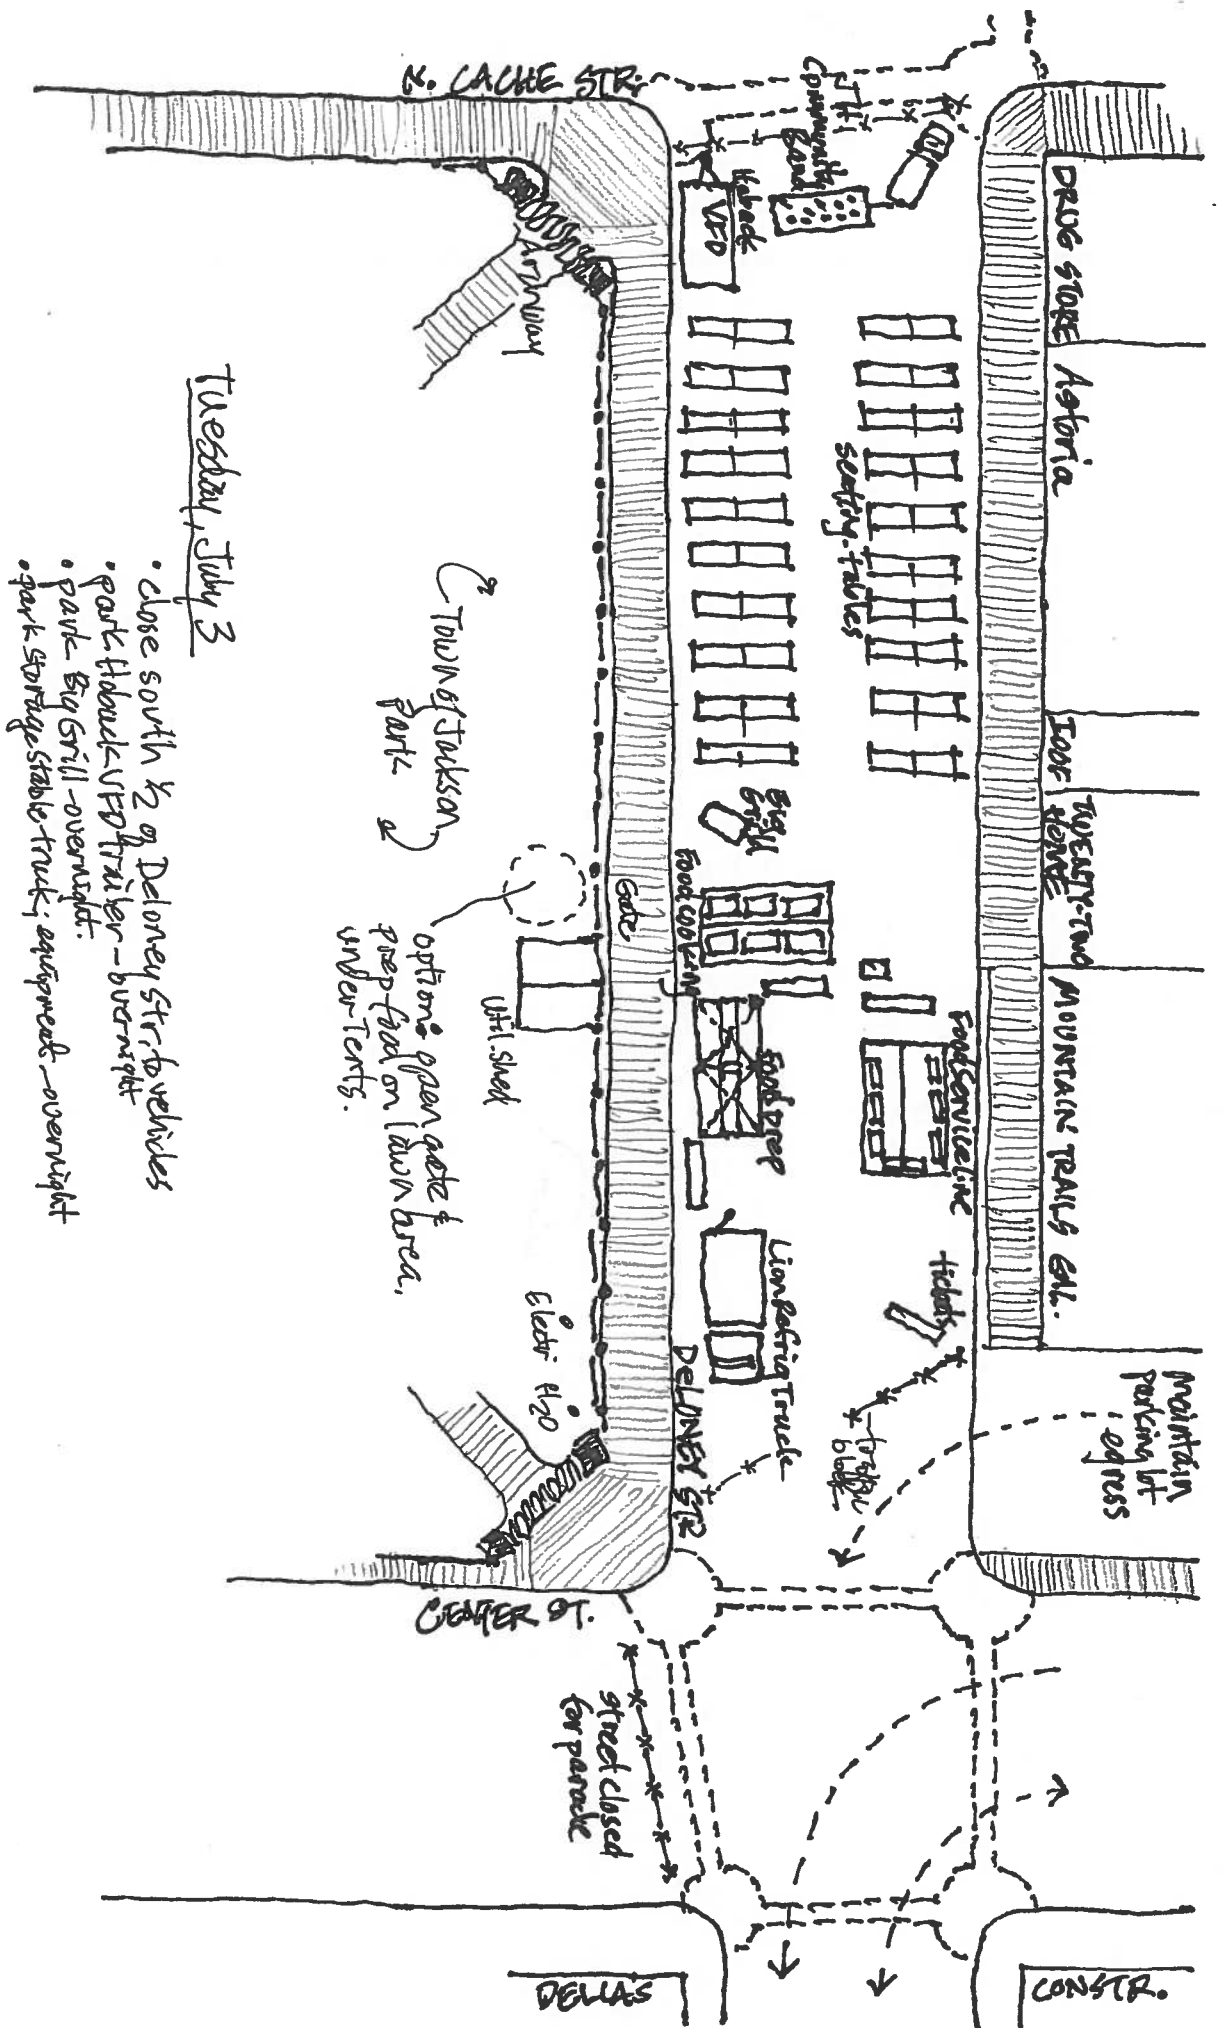 N. CACHE STR.
Community
Band
Hoback
VFD
DRUG STORE
Astoria
IOOF
TWENTY-TWO
HOME
MOUNTAIN TRAILS GAL.
Maintain
parking lot
egress
seating-tables
Big
Grill
Food Cooking
Food Prep
Food Service Line
tickets
Lion Refrig Truck
traffic
block
DELONEY STR
Gate
Arzway
Town of Jackson
Park
option: open gate &
prep food on lawn area,
under Tents.
Util. Shed
Electr H2O
CENTER ST.
street closed
for parade
DELLAS
CONSTR.
Tuesday, July 3
• close south 1/2 of Deloney Str. to vehicles
• park Hoback VFD trailer - overnight
• park Big Grill - overnight.
• park storage stable truck; equipment - overnight